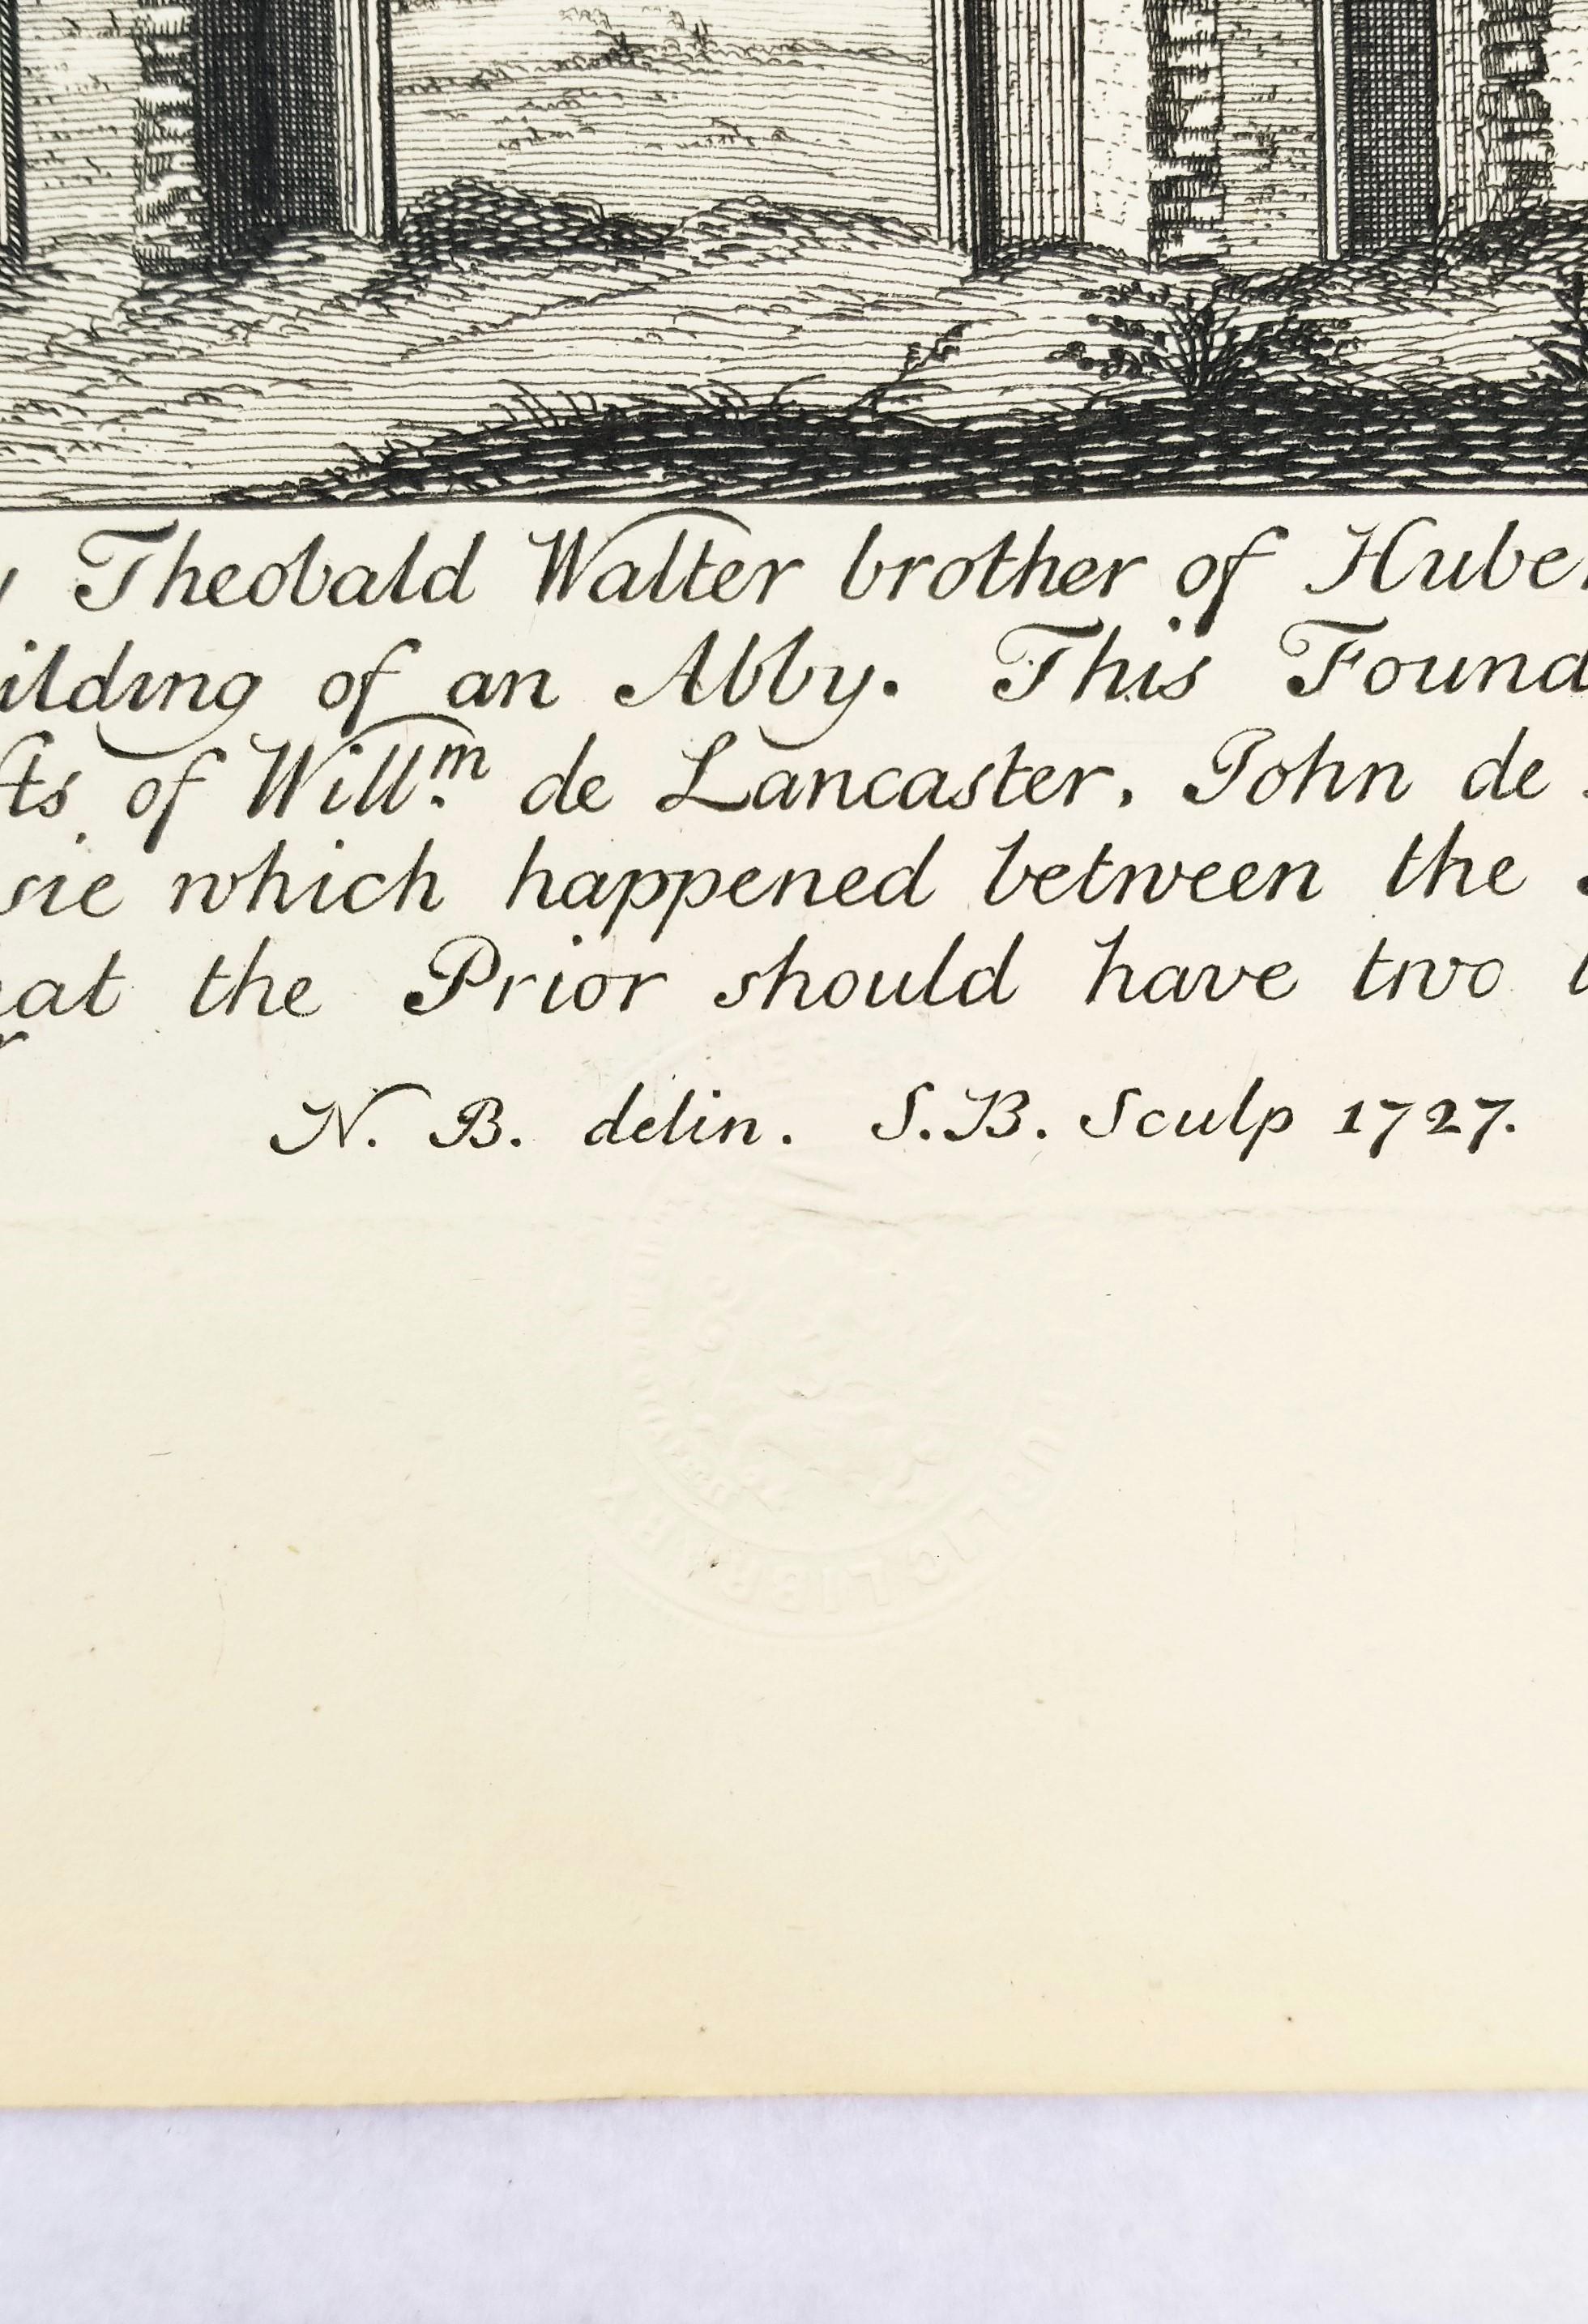 Theobald Walter brother of Huber
ilding of an Abby. This Found
fts of Willm. de Lancaster, John de
sie which happened between the
eat the Prior should have two
N. B. delin. S.B. Sculp 1727.
UBLIC LIBRARY